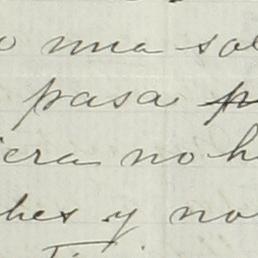 o una sol
pasa
iera no h
hes y no